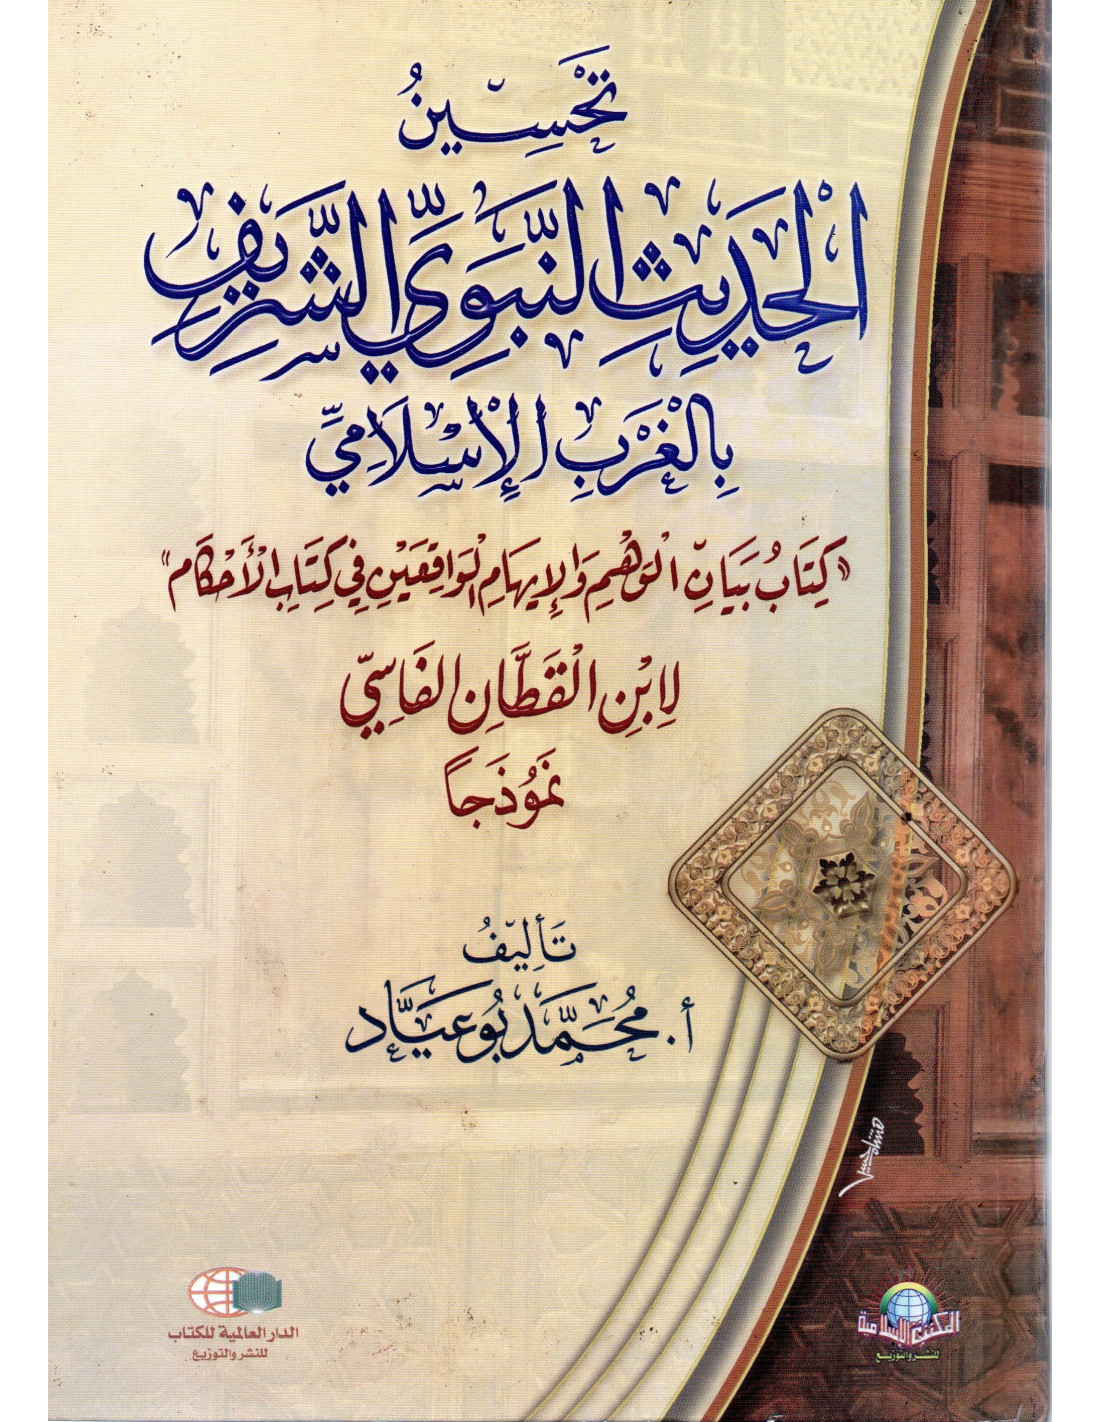 تَحْسِينُ
الْحَدِيثِ النَّبَوِيِّ الشَّرِيفِ
بِالْغَرْبِ الْإِسْلَامِيِّ
«كِتَابُ بَيَانِ الْوَهْمِ وَالْإِيهَامِ الْوَاقِعَيْنِ فِي كِتَابِ الْأَحْكَامِ»
لِابْنِ الْقَطَّانِ الْفَاسِيِّ
نَمُوذَجاً
تَأْلِيفُ
أ. مُحَمَّد بُوعَيَّاد
الدار العالمية للكتاب
للنشر والتوزيع
المكتبة الإسلامية
للنشر والتوزيع